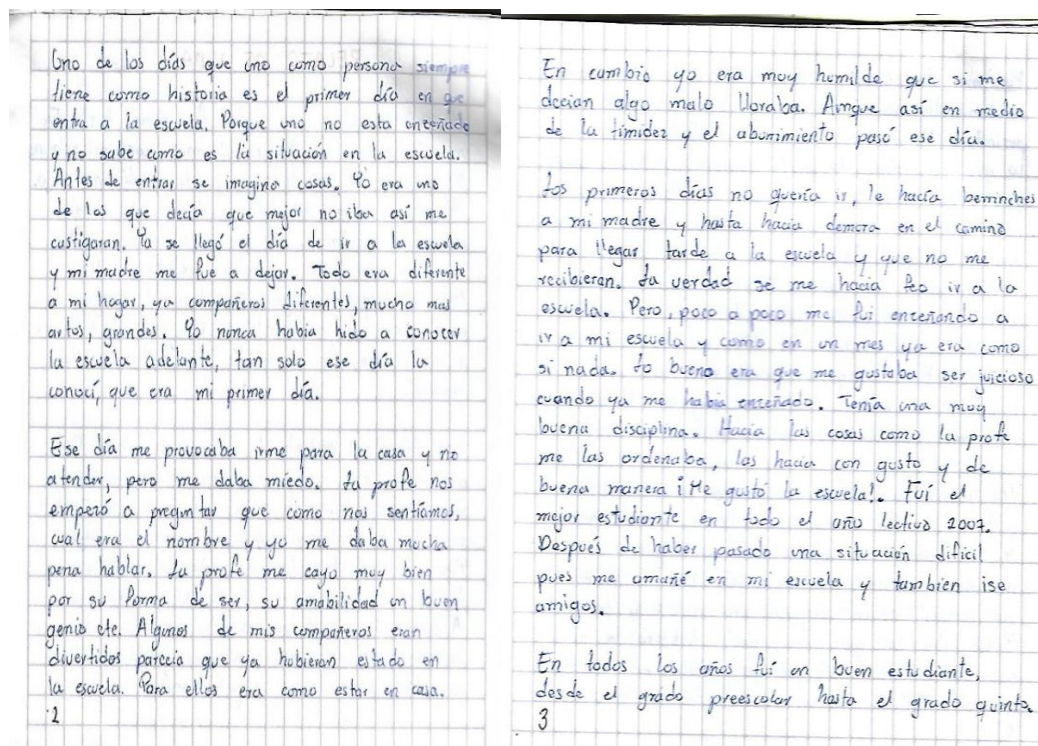 Uno de los días que uno como persona siempre
tiene como historia es el primer día en que
entra a la escuela. Porque uno no esta enceñado
y no sabe como es la situación en la escuela.
Antes de entrar se imagina cosas. Yo era uno
de los que decía que mejor no iba así me
castigaran. Ya se llegó el día de ir a la escuela
y mi madre me fue a dejar. Todo era diferente
a mi hogar, ya compañeros diferentes, mucho mas
artos, grandes. Yo nunca habia hido a conocer
la escuela adelante, tan solo ese día la
conocí, que era mi primer día.
Ese día me provocaba irme para la casa y no
atender, pero me daba miedo. La profe nos
emperó a preguntar que como nos sentíamos,
cual era el nombre y yo me daba mucha
pena hablar. La profe me cayo muy bien
por su forma de ser, su amabilidad un buen
genio etc. Algunos de mis compañeros eran
divertidos parecia que ya hubieran estado en
la escuela. Para ellos era como estar en casa.
2
En cambio yo era muy humilde que si me
decian algo malo lloraba. Aunque así en medio
de la timidez y el aburrimiento pasó ese día.
Los primeros días no quería ir, le hacía berrinches
a mi madre y hasta hacia demora en el camino
para llegar tarde a la escuela y que no me
recibieran. La verdad se me hacia feo ir a la
escuela. Pero, poco a poco me fui enceñando a
ir a mi escuela y como en un mes ya era como
si nada. Lo bueno era que me gustaba ser juicioso
cuando ya me habia enceñado. Tenía una muy
buena disciplina. Hacia las cosas como la profe
me las ordenaba, las hacia con gusto y de
buena manera ¡Me gustó la escuela!. Fuí el
mejor estudiante en todo el año lectivo 2007.
Después de haber pasado una situación dificil
pues me amañé en mi escuela y tambien ise
amigos.
En todos los años fuí un buen estudiante,
desde el grado preescolar hasta el grado quinto.
3